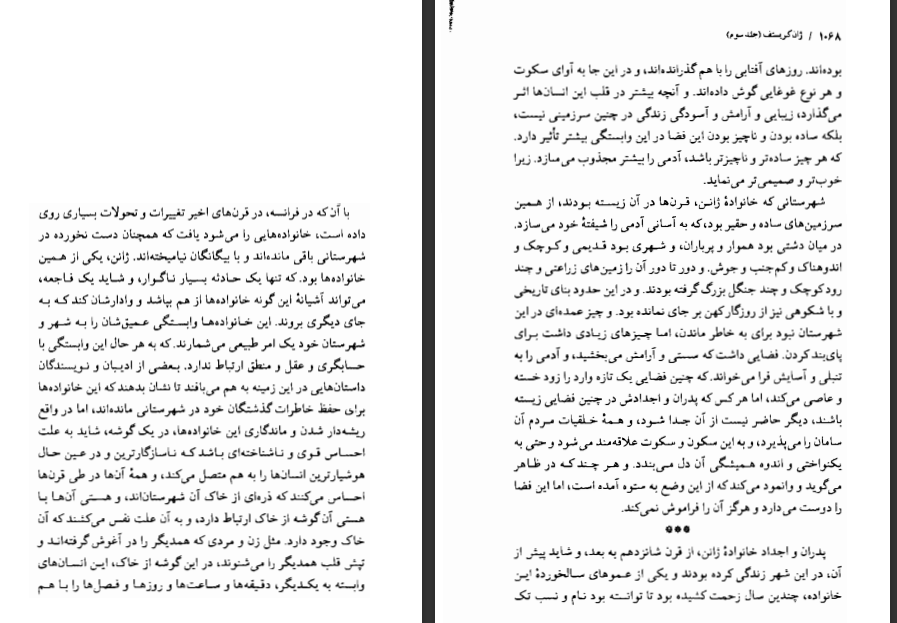 با آن که در فرانسه، در قرن‌های اخیر تغییرات و تحولات بسیاری روی
داده است، خانواده‌هایی را می‌شود یافت که همچنان دست نخورده در
شهرستانی باقی مانده‌اند و با بیگانگان نیامیخته‌اند. ژانن، یکی از همین
خانواده‌ها بود. که تنها یک حادثه بسیار ناگوار، و شاید یک فاجعه،
می‌تواند آشیانهٔ این گونه خانواده‌ها از هم بپاشد و وادارشان کند که به
جای دیگری بروند. این خانواده‌ها وابستگی عمیق‌شان را به شهر و
شهرستان خود یک امر طبیعی می‌شمارند. که به هر حال این وابستگی با
حسابگری و عقل و منطق ارتباط ندارد. بعضی از ادیبان و نویسندگان
داستان‌هایی در این زمینه به هم می‌بافند تا نشان بدهند که این خانواده‌ها
برای حفظ خاطرات گذشتگان خود در شهرستانی مانده‌اند، اما در واقع
ریشه‌دار شدن و ماندگاری این خانواده‌ها، در یک گوشه، شاید به علت
احساس قوی و ناشناخته‌ای باشد که ناسازگارترین و در عین حال
هوشیارترین انسان‌ها را به هم متصل می‌کند، و همهٔ آن‌ها در طی قرن‌ها
احساس می‌کنند که ذره‌ای از خاک آن شهرستان‌اند، و هستی آن‌ها با
هستی آن گوشه از خاک ارتباط دارد، و به آن علت نفس می‌کشند که آن
خاک وجود دارد. مثل زن و مردی که همدیگر را در آغوش گرفته‌اند و
تپش قلب همدیگر را می‌شنوند، در این گوشه از خاک، این انسان‌های
وابسته به یکدیگر، دقیقه‌ها و ساعت‌ها و روزها و فصل‌ها را با هم
۱۰۶۸ / ژان کریستف (جلد سوم)
بوده‌اند. روزهای آفتابی را با هم گذرانده‌اند، و در این جا به آوای سکوت
و هر نوع غوغایی گوش داده‌اند. و آنچه بیشتر در قلب این انسان‌ها اثر
می‌گذارد، زیبایی و آرامش و آسودگی زندگی در چنین سرزمینی نیست،
بلکه ساده بودن و ناچیز بودن این فضا در این وابستگی بیشتر تأثیر دارد.
که هر چیز ساده‌تر و ناچیزتر باشد، آدمی را بیشتر مجذوب می‌سازد. زیرا
خوب‌تر و صمیمی‌تر می‌نماید.
شهرستانی که خانوادهٔ ژانن، قرن‌ها در آن زیسته بودند، از همین
سرزمین‌های ساده و حقیر بود، که به آسانی آدمی را شیفتهٔ خود می‌سازد.
در میان دشتی بود هموار و پرباران، و شهری بود قدیمی و کوچک و
اندوهناک و کم‌جنب و جوش. و دور تا دور آن را زمین‌های زراعتی و چند
رود کوچک و چند جنگل بزرگ گرفته بودند. و در این حدود بنای تاریخی
و با شکوهی نیز از روزگار کهن بر جای نمانده بود. و چیز عمده‌ای در این
شهرستان نبود برای به خاطر ماندن، اما چیزهای زیادی داشت برای
پای‌بند کردن. فضایی داشت که سستی و آرامش می‌بخشید، و آدمی را به
تنبلی و آسایش فرا می‌خواند. که چنین فضایی یک تازه وارد را زود خسته
و عاصی می‌کند، اما هر کس که پدران و اجدادش در چنین فضایی زیسته
باشند، دیگر حاضر نیست از آن جدا شود، و همهٔ خلقیات مردم آن
سامان را می‌پذیرد، و به این سکون و سکوت علاقه‌مند می‌شود و حتی به
یکنواختی و اندوه همیشگی آن دل می‌بندد. و هر چند که در ظاهر
می‌گوید و وانمود می‌کند که از این وضع به ستوه آمده است، اما این فضا
را دوست می‌دارد و هرگز آن را فراموش نمی‌کند.
***
پدران و اجداد خانوادهٔ ژانن، از قرن شانزدهم به بعد، و شاید پیش از
آن، در این شهر زندگی کرده بودند و یکی از عموهای سالخوردهٔ این
خانواده، چندین سال زحمت کشیده بود تا توانسته بود نام و نسب تک